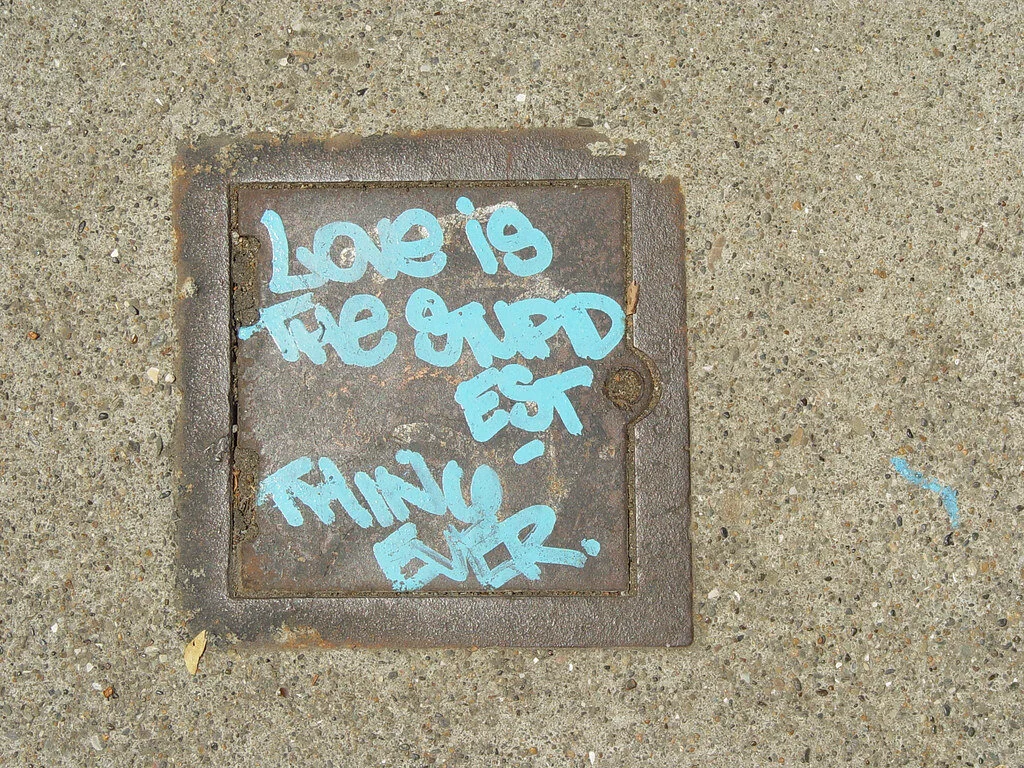 LOVE is
THE STUPD
EST
THING
EVER.